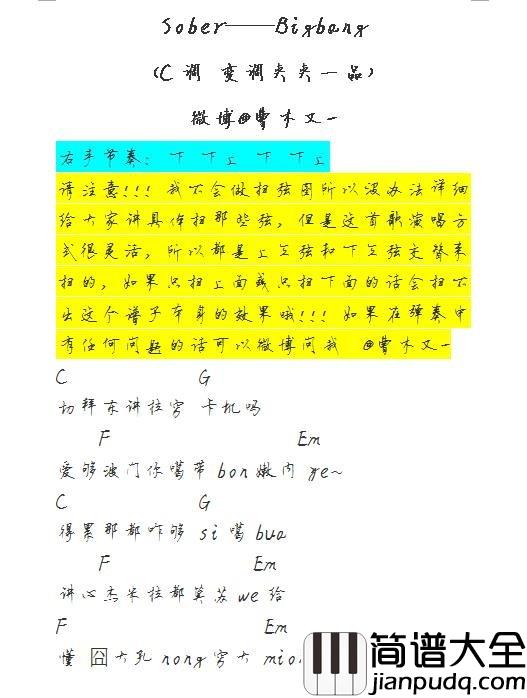 Sober——Bigbang
（C调 变调夹夹一品）
微博@曹木又一
右手节奏：下 下上 下 下上
请注意!!! 我不会做扫弦图所以没办法详细
给大家讲具体扫那些弦，但是这首歌演唱方
式很灵活，所以都是上三弦和下三弦交替来
扫的，如果只扫上面或只扫下面的话会扫不
出这个谱子本身的效果哦!!! 如果在弹奏中
有任何问题的话可以微博问我 @曹木又一
C G
切拜东讲拉穷 卡机吗
F Em
爱够波门你噶带 bon 嫩内 ye~
C G
得累那都咋够 si 噶 bua
F Em
讲心杰米拉都莫苏 we 给
F Em
懂 囧大乳 nong 穷大 mio
简谱大全
jianpudq.com